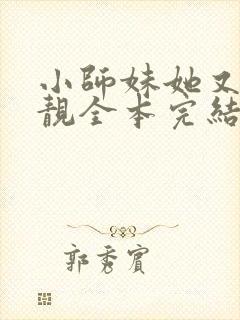 小師妹她又
靚全本完結
郭秀賓